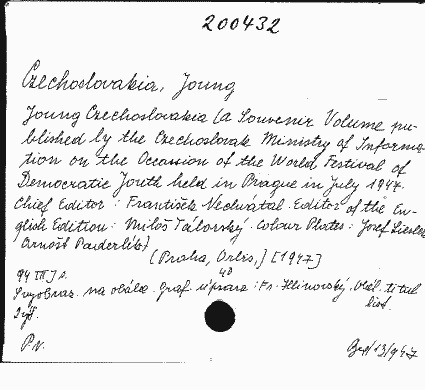 200432
Czechoslovakia, Young
Young Czechoslovakia (a Souvenir Volume pu-
blished by the Czechoslovak Ministry of Informa-
tion on the Occassion of the World Festival of
Democratic Youth held in Prague in July 1947.
Chief Editor: František Nechvátal. Editor of the En-
glish Edition: Miloš Tálovský. Colour Plates: Josef Liesler
Arnošt Paderlík)
(Praha, Orbis,) [1947]
94 III) s. 4°
na obálce. Graf. úprava: Fr. Obál. titul
list.
P.v. 13/947